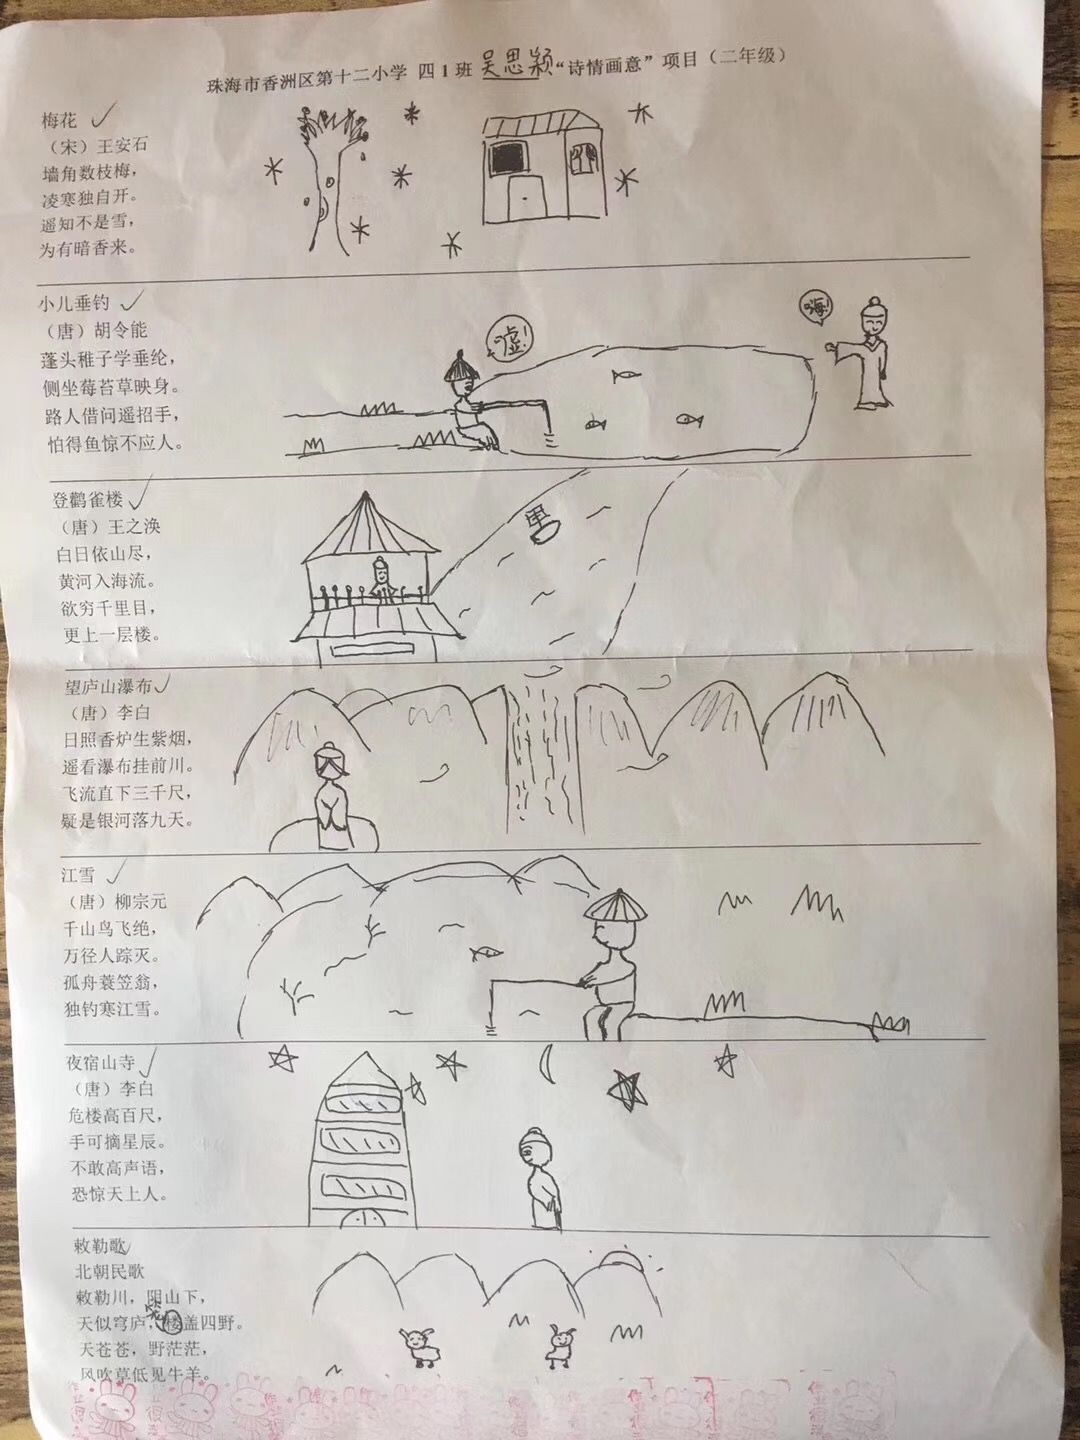 珠海市香洲区第十二小学 四1班 吴思颖 “诗情画意”项目（二年级）
梅花
（宋）王安石
墙角数枝梅，
凌寒独自开。
遥知不是雪，
为有暗香来。
小儿垂钓
（唐）胡令能
蓬头稚子学垂纶，
侧坐莓苔草映身。
路人借问遥招手，
怕得鱼惊不应人。
嘘!
嗨!
登鹳雀楼
（唐）王之涣
白日依山尽，
黄河入海流。
欲穷千里目，
更上一层楼。
望庐山瀑布
（唐）李白
日照香炉生紫烟，
遥看瀑布挂前川。
飞流直下三千尺，
疑是银河落九天。
江雪
（唐）柳宗元
千山鸟飞绝，
万径人踪灭。
孤舟蓑笠翁，
独钓寒江雪。
夜宿山寺
（唐）李白
危楼高百尺，
手可摘星辰。
不敢高声语，
恐惊天上人。
敕勒歌
北朝民歌
敕勒川，阴山下，
天似穹庐，笼盖四野。
天苍苍，野茫茫，
风吹草低见牛羊。